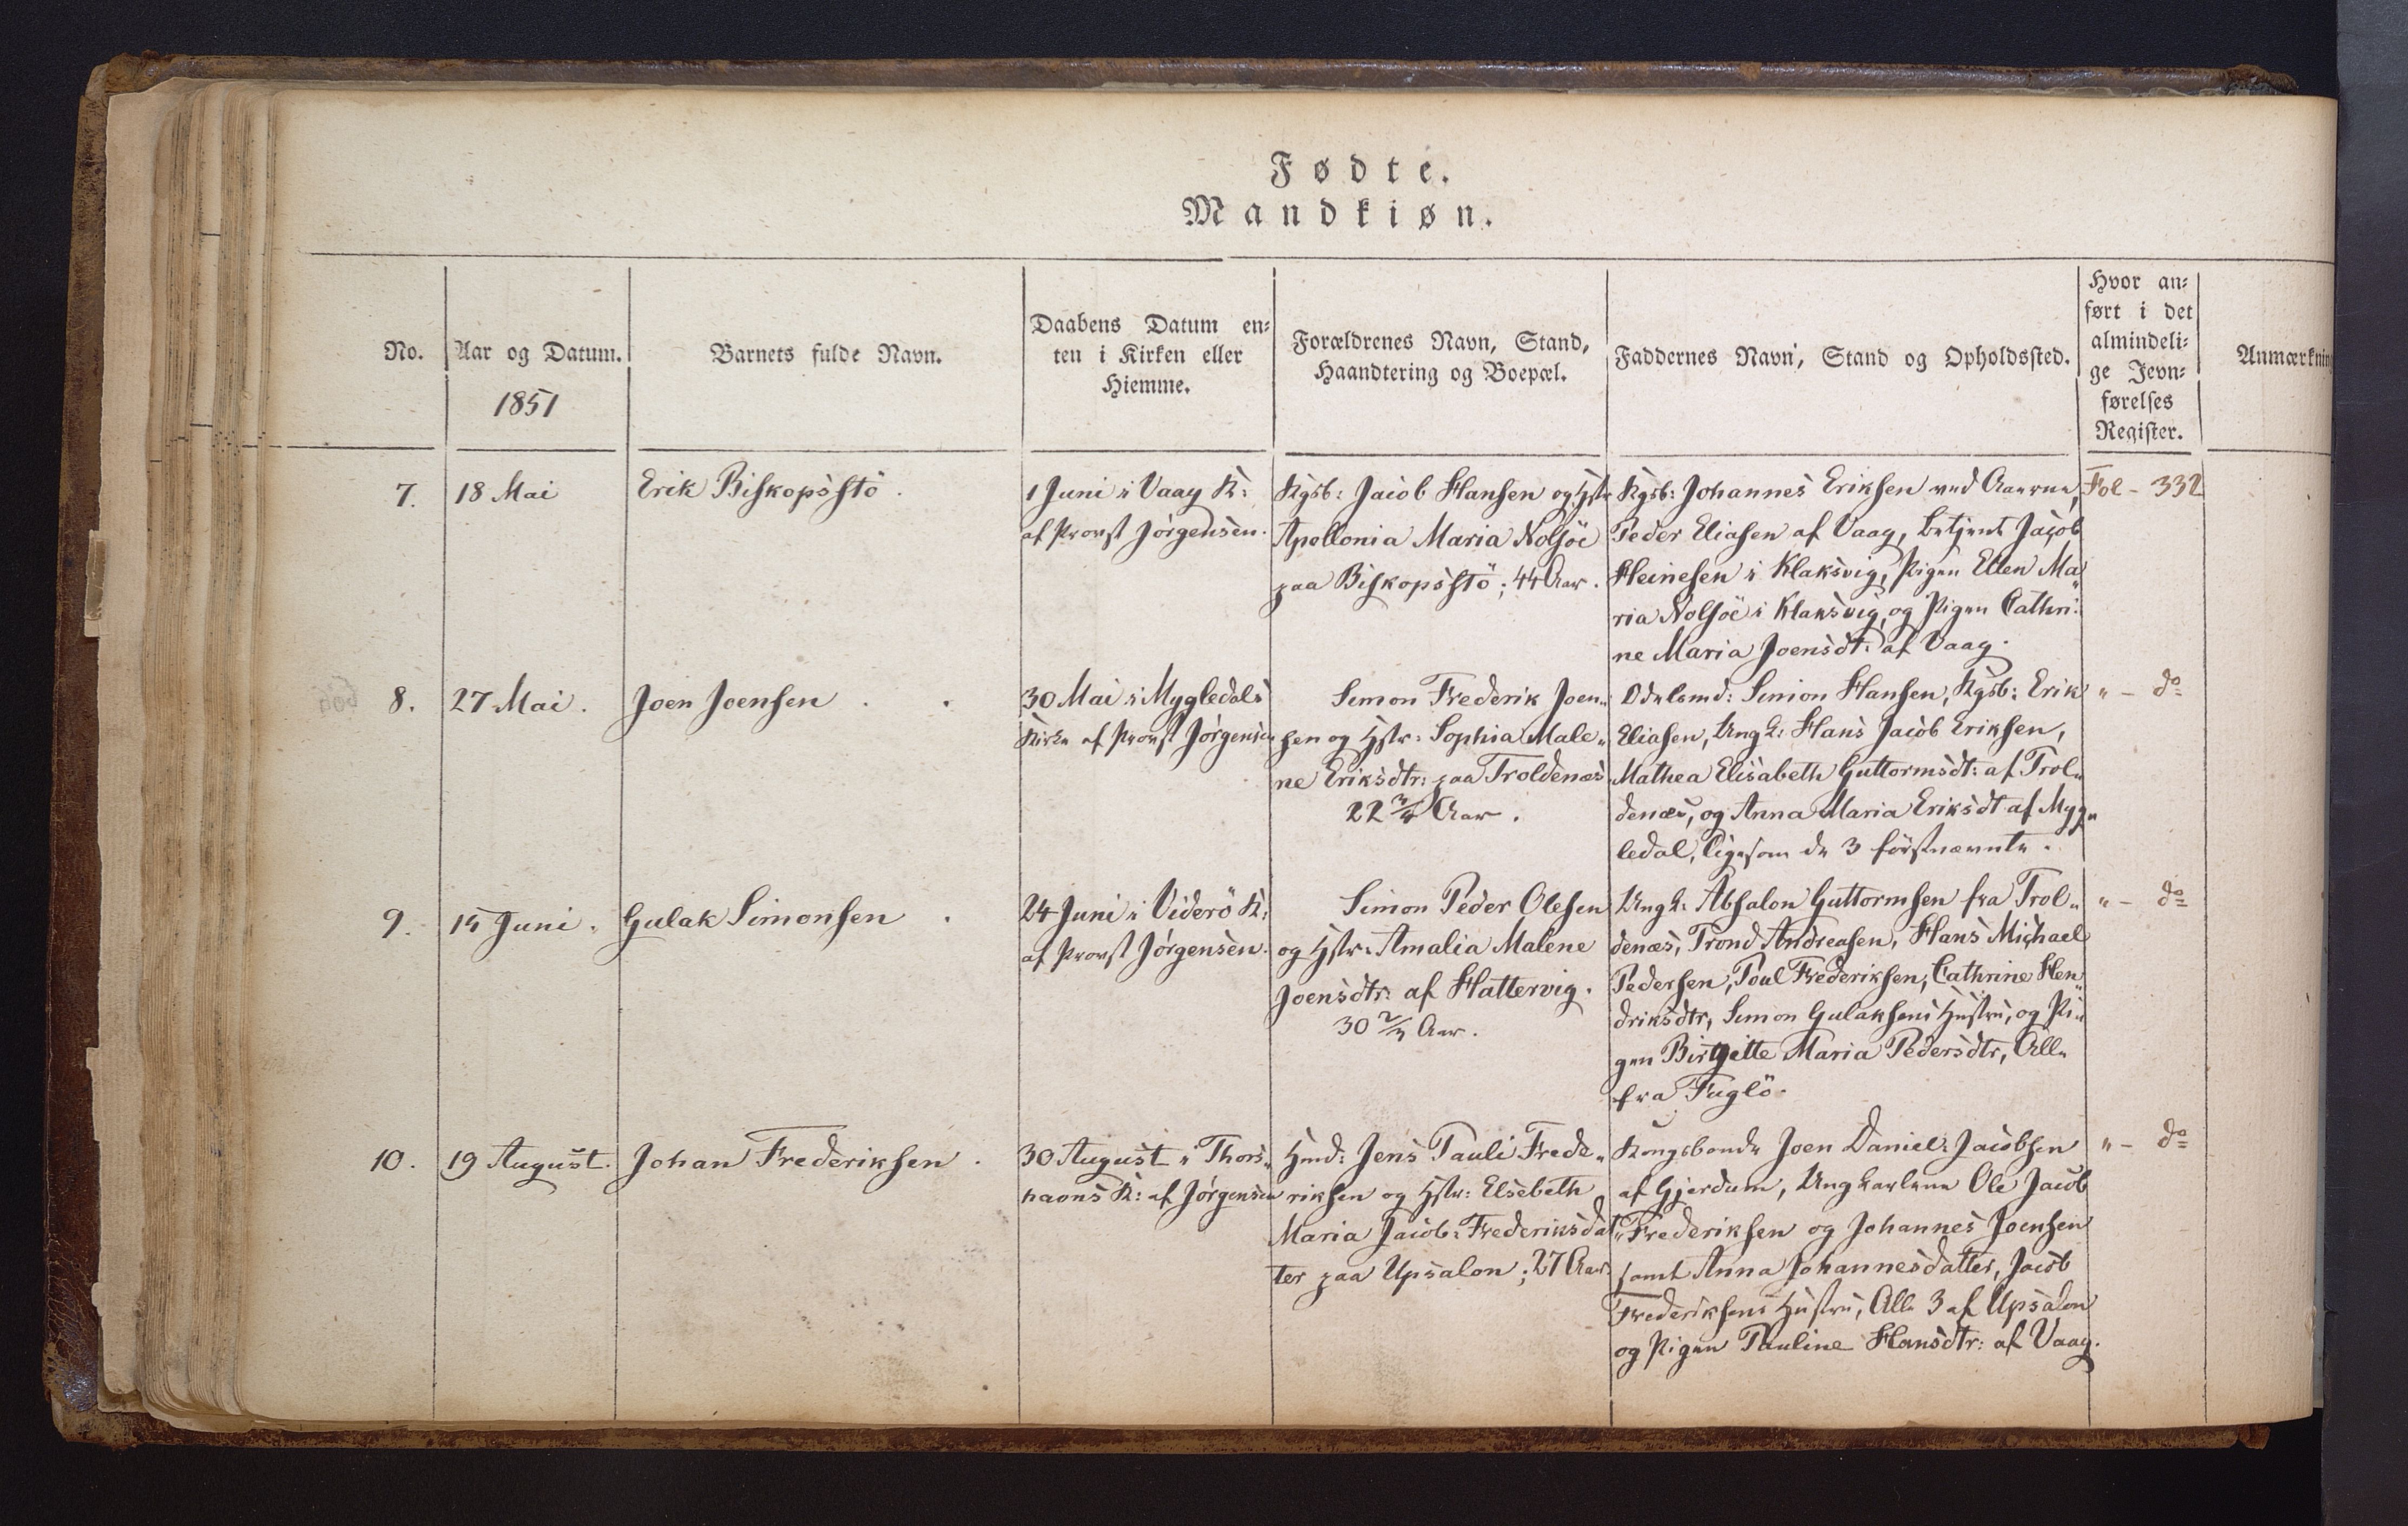 Fødte.
Mandkiøn.
No.
Aar og Datum.
1851
Barnets fulde Navn.
Daabens Datum en=
ten i Kirken eller
Hiemme.
Forældrenes Navn, Stand,
Haandtering og Boepæl.
Faddernes Navn, Stand og Opholdssted.
Hvor an=
ført i det
almindeli=
ge Jevn=
førelses
Register.
Anmærknin
7.
18 Mai
Erik Biskopsstö.
1 Juni i Vaag K:
af Provst Jörgensen.
Kgsb: Jacob Hansen og Hstr
Apollonia Maria Nolsöe
paa Biskopsstö; 44 Aar.
Kgsb: Johannes Eriksen ved Aaerne,
Peder Eliasen af Vaag, Betjent Jacob
Heinesen i Klaksvig, Pigen Ellen Ma„
ria Nolsöe i Klaksvig, og Pigen Cathri„
ne Maria Joensdt: af Vaag.
Fol - 332
8.
27 Mai.
Joen Joensen
30 Mai i Mygledals
Kirke af Provst Jörgensen
Simon Frederik Joen„
sen og Hstr: Sophia Male„
ne Eriksdtr: paa Troldenæs
22 3/4 Aar.
Odelsmd: Simon Hansen, Kgsb: Erik
Eliasen, Ungk: Hans Jacob Eriksen,
Mathea Elisabeth Guttormsdt: af Trol„
denæs, og Anna Maria Eriksdt af Myg„
ledal, ligesom de 3 förstnævnte.
" - do
9.
15 Juni.
Gulak Simonsen
24 Juni i Viderö K:
af Provst Jörgensen.
Simon Peder Olesen
og Hstr: Amalia Malene
Joensdtr: af Hattervig.
30 2/3 Aar.
Ungk: Absalon Guttormsen fra Trol„
denæs, Trond Andreasen, Hans Michael
Pedersen, Poul Frederiksen, Cathrine Hen„
driksdtr, Simon Gulaksens Hustru, og Pi„
gen Birgitte Maria Pedersdtr, Alle
fra Fuglö.
" - do
10.
19 August.
Johan Frederiksen.
30 August i Thors„
havns K: af Jörgensen
Hmd: Jens Pauli Frede„
riksen og Hstr: Elsebeth
Maria Jacob: Frederiksdat„
ter paa Upsalon; 27 Aar.
Kongsbonde Joen Daniel: Jacobsen
af Gjerdum, Ungkarlene Ole Jacob
Frederiksen og Johannes Joensen
samt Anna Johannesdatter, Jacob
Frederiksens Hustru, Alle 3 af Upsalon
og Pigen Pauline Hansdtr: af Vaag.
" - do